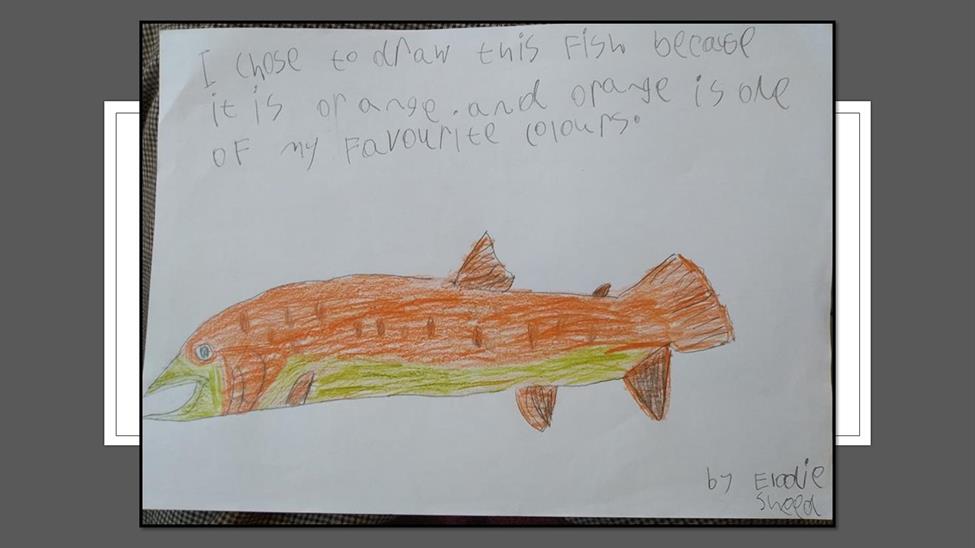 I chose to draw this Fish because
it is orange. and orange is one
oF my Favourite colours.
by Elodie
Sheed